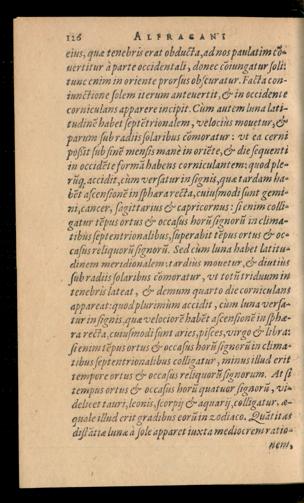 126 ALFRAGANI
eius, quæ tenebris erat obducta, ad nos paulatim cō-
uertitur à parte occidentali, donec cōiungatur soli:
tunc enim in oriente prorsus obscuratur. Facta con-
iunctione solem iterum anteuertit, & in occidente
corniculans apparere incipit. Cùm autem luna lati-
tudinē habet septētrionalem, velociùs mouetur, &
parum sub radiis solaribus cōmoratur: vt ea cerni
poßit sub finē mensis manè in oriēte, & die sequenti
in occidēte formā habens corniculantem: quod ple-
rūq. accidit, cùm versatur in signis, quæ tardam ha-
bēt ascensionē in sphæra recta, cuiusmodi sunt gemi-
ni, cancer, sagittarius & capricornus: si enim colli-
gatur tēpus ortus & occasus horū signorū in clima-
tibus septentrionalibus, superabit tēpus ortus & oc-
casus reliquorū signorū. Sed cùm luna habet latitu-
dinem meridionalem: tardiùs mouetur, & diutiùs
sub radiis solaribus cōmoratur, vt totū triduum in
tenebris lateat, & demum quarto die corniculans
appareat: quod plurimùm accidit, cùm luna versa-
tur in signis, quæ velociorē habēt ascensionē in sphæ-
ra recta, cuiusmodi sunt aries, pisces, virgo & libra:
si enim tēpus ortus & occasus horū signorū in clima-
tibus septentrionalibus colligatur, minus illud erit
tempore ortus & occasus reliquorū signorum. At si
tempus ortus & occasus horū quatuor signorū, vi-
delicet tauri, leonis, scorpij & aquarij, colligatur, æ-
quale illud erit gradibus eorū in zodiaco. Quātitas
distātiæ lunæ à sole apparet iuxta mediocrem ratio-
nem,